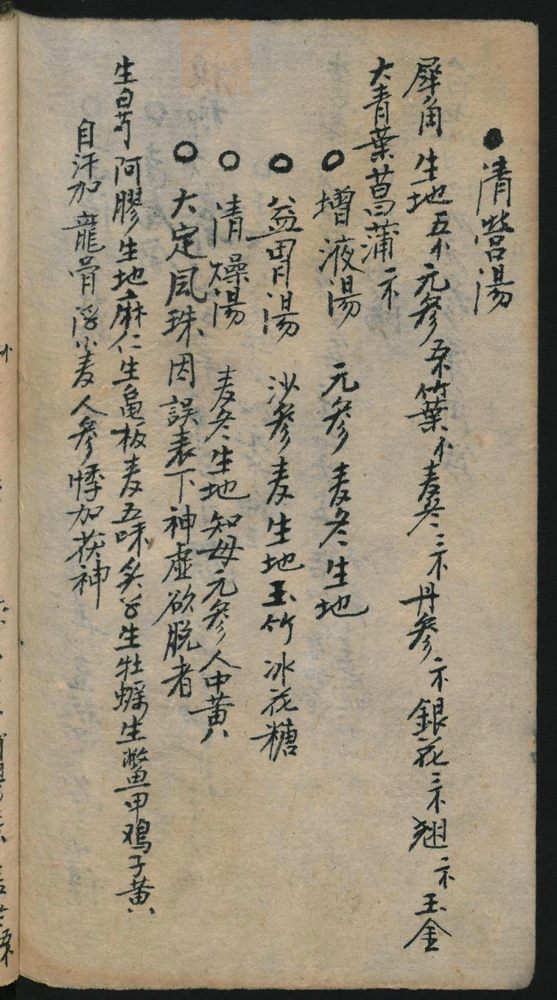 清營湯
犀角 生地五小 元參 竹葉小 麥冬 三 丹參 銀花三 翹 玉金
大青葉 菖蒲
增液湯 元參 麦冬 生地
益胃湯 沙參 麦 生地 玉竹 冰花糖
清燥湯 麦冬 生地 知母 元參 人中黄
大定風珠 因誤表下神虚欲脱者
生白芍 阿膠 生地 麻仁 生龜板 麦 五味 炙 生牡蠣 生鱉甲 鸡子黄
自汗加龍骨 浮小麦 人參 悸加茯神